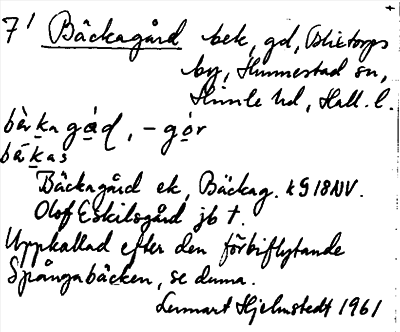 7' Bäckagård bek, gd, Blixtorps
by, Hunnestad sn,
Himle hd, Hall. l.
bèr ka gá̱d, – gó̱r
bǽkas
Bäckagård ek, Bäckag. kG18NV.
Olof Eskilsgård jb †.
Uppkallad efter den förbiflytande
Spångabäcken, se denna.
Lennart Hjelmstedt 1961